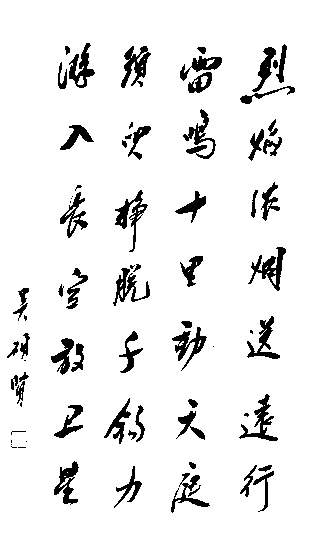 烈焰浓烟送遠行
雷鸣十里動天庭
须臾挣脱千钧力
游入長空放卫星
吴硕贤